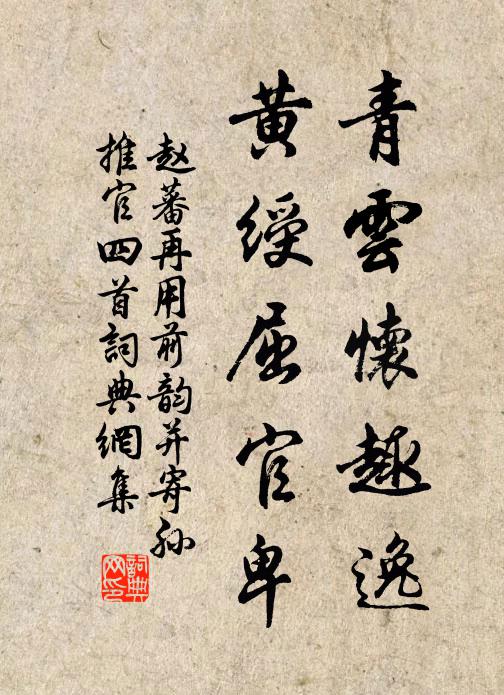 青雲懷趣逸
黄綬屈官卑
赵蕃再用前韵并寄孙
推官四首詞典網集
詞典網印